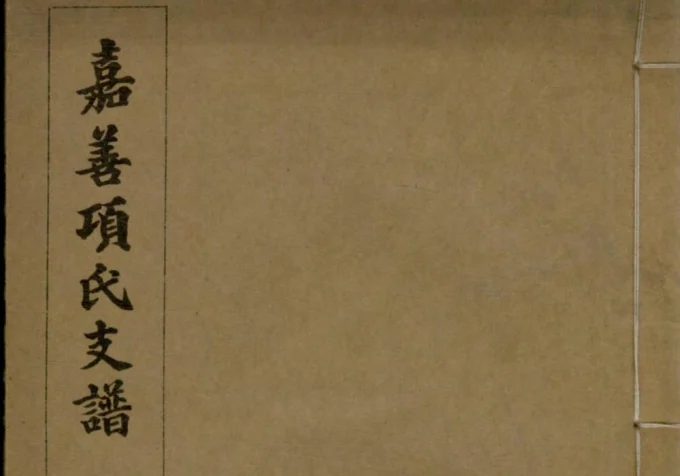 嘉善項氏支譜